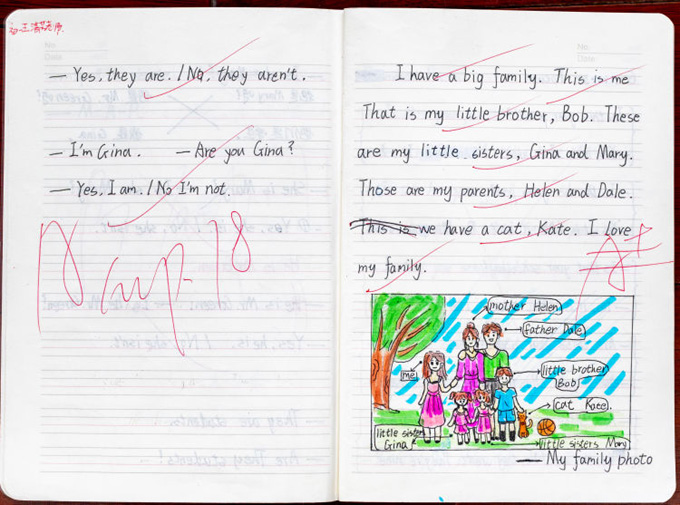 No.
Date
— Yes, they are. / No, they aren't.
— I'm Gina. — Are you Gina?
— Yes, I am. / No I'm not.
No.
Date
I have a big family. This is me
That is my little brother, Bob. These
are my little sisters, Gina and Mary.
Those are my parents, Helen and Dale.
This is we have a cat, Kate. I Love
my family.
A+
mother Helen
father Dale
me
little brother
Bob
cat Kate
little sister
Gina
little sisters Mary
— My family photo